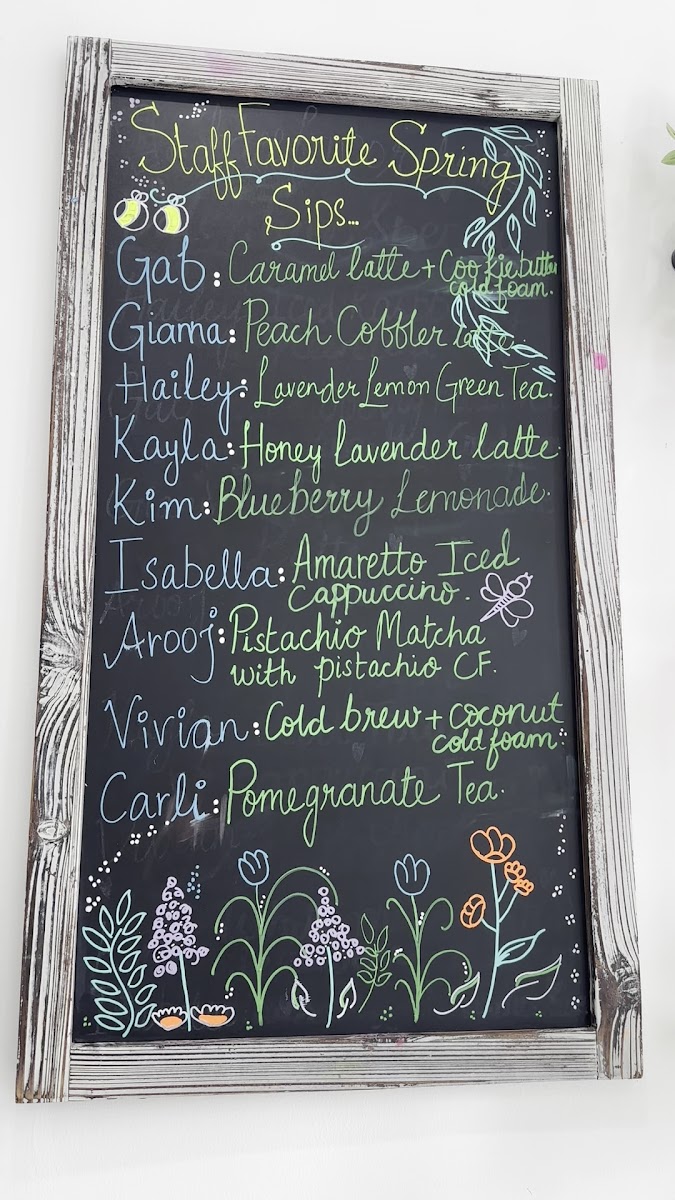 Staff Favorite Spring
Sips...
Gab: Caramel latte + Cookie butter
cold foam.
Giama: Peach Cobbler latte.
Hailey: Lavender Lemon Green Tea.
Kayla: Honey lavender latte.
Kim: Blueberry Lemonade.
Isabella: Amaretto Iced
Cappuccino.
Arooj: Pistachio Matcha
with pistachio CF.
Vivian: Cold brew + coconut
cold foam.
Carli: Pomegranate Tea.